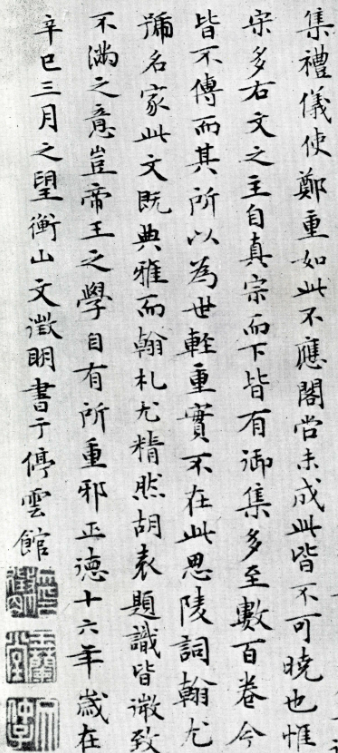 集禮儀使鄭重如此不應閣尚未成此皆不可曉也惟
宋多右文之主自真宗而下皆有御集多至數百卷今
皆不傳而其所以為世輕重實不在此思陵詞翰尤
號名家此文既典雅而翰札尤精然胡袁題識皆微致
不滿之意豈帝王之學自有所重邪正德十六年歲在
辛巳三月之望衡山文徵明書于停雲館